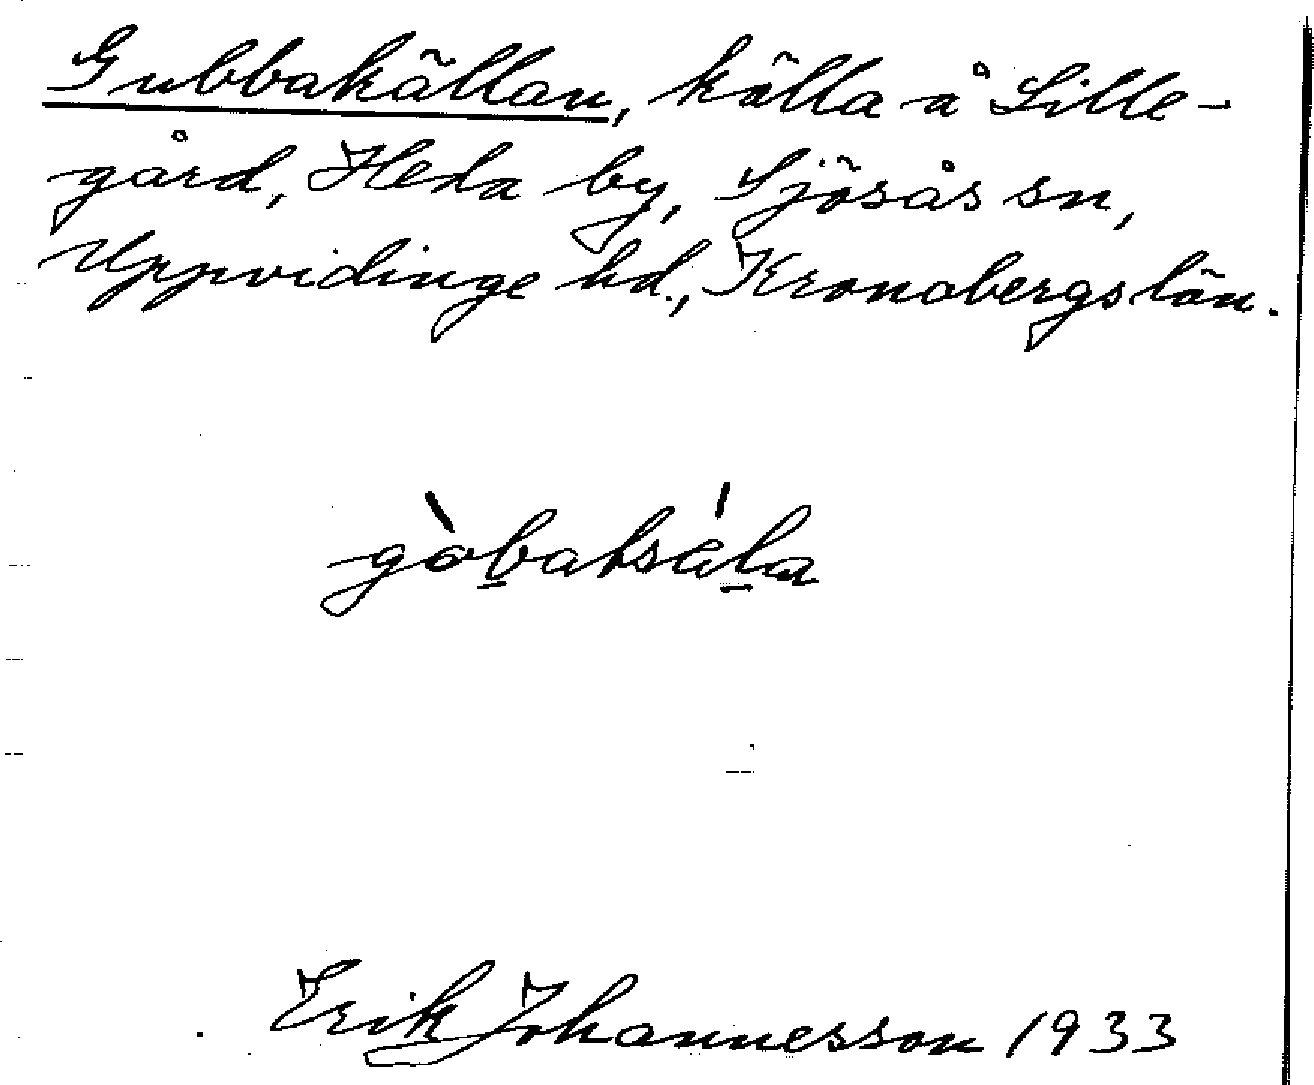 Gubbakällan, källa å Lille-
gård, Heda by, Sjösås sn,
Uppvidinge hd., Kronobergs län.
gòbaksál̲a
Erik Johannesson 1933